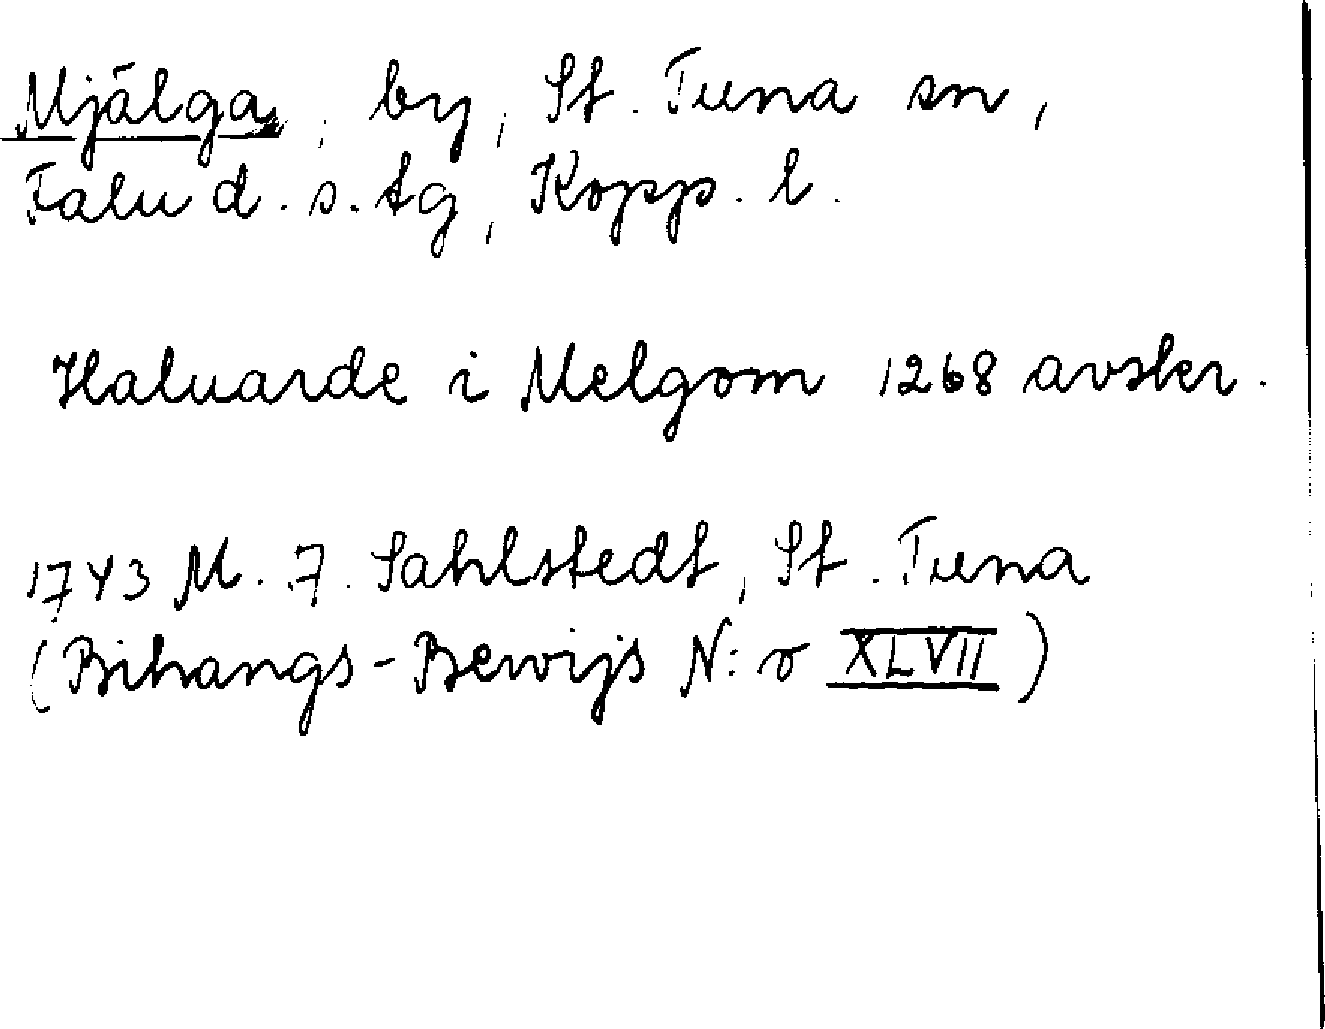 Mjälga, by, St. Tuna sn,
Falu d. s. tg, Kopp. l.
Haluarde i Melgom 1268 avskr.
1743 M. F. Sahlstedt, St. Tuna
(Bihangs-Bewijs N:o XLVII)